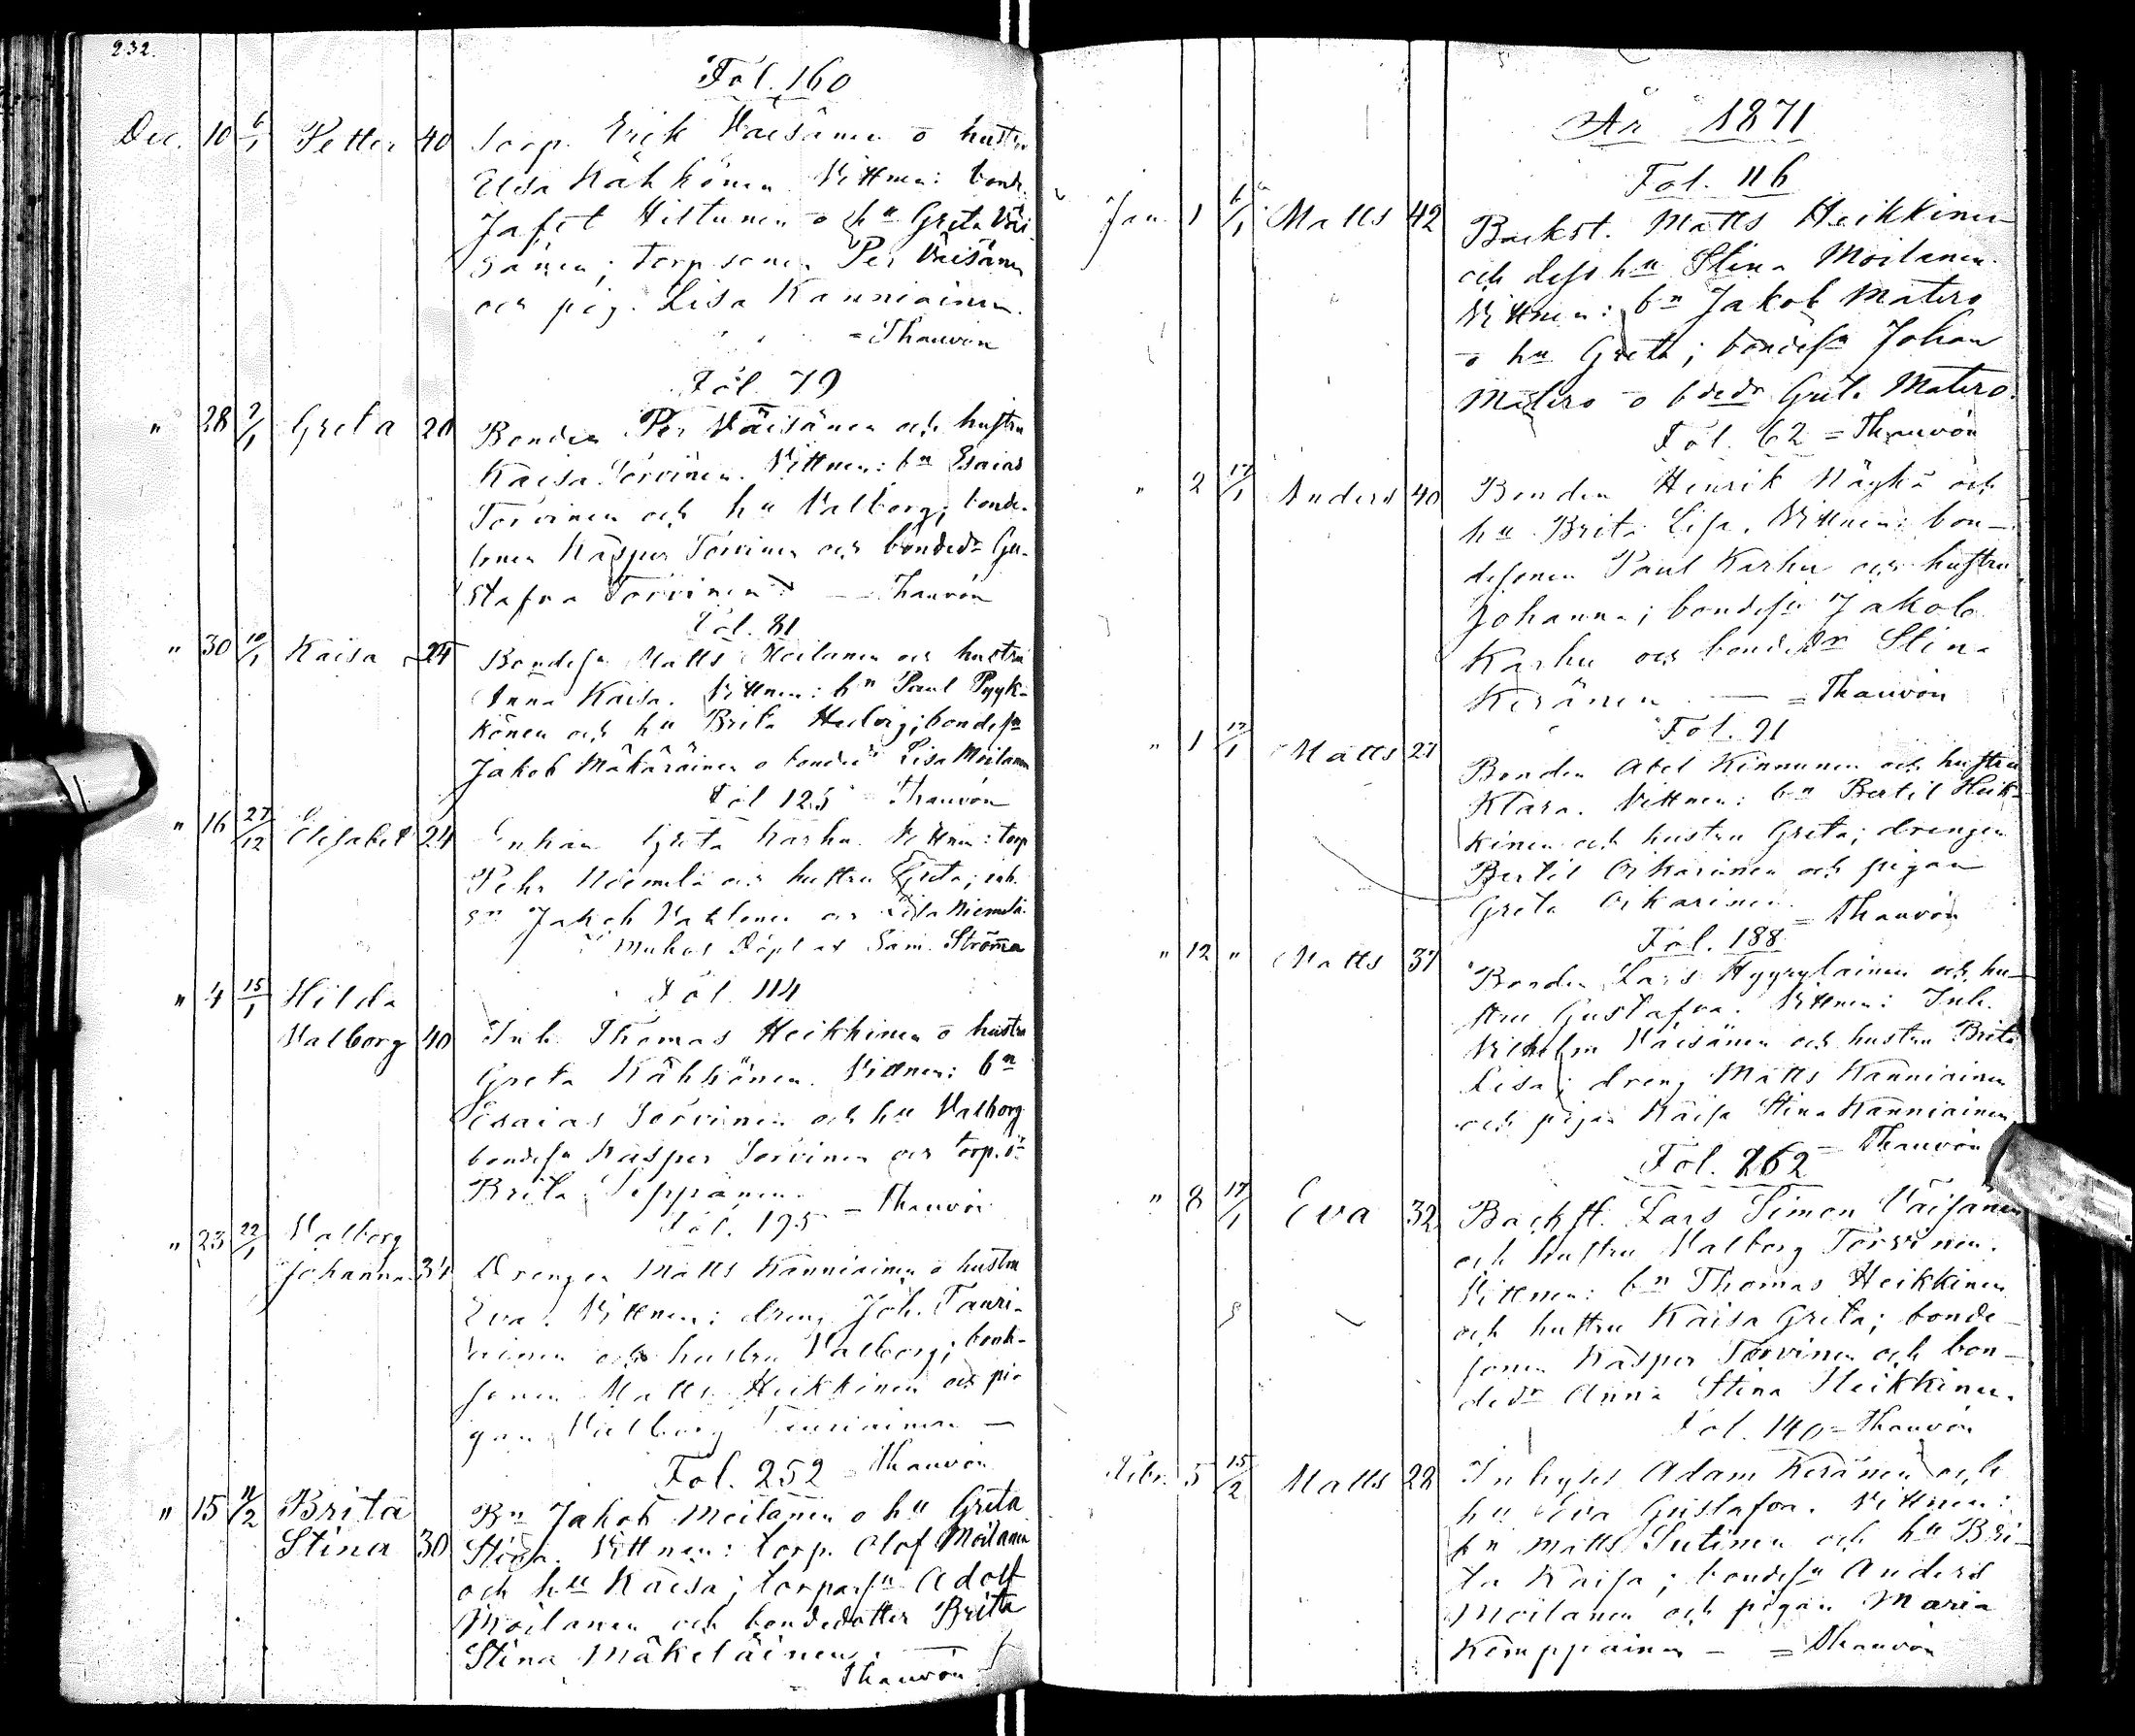 232.
Fol. 160
Dec. 10 6/1 Petter 40 Torp. Erik Väisänen o hustru
Elsa Kähkönen Vittnen: bond.
Jafet Hiltunen o hu Greta Väi-
sänen; torpsonen Per Väisänen
och pig. Lisa Kanniainen.
= Thauvón
Fol. 79
" 28 7/1 Greta 20 Bonden Per Väisänen och hustru
Kaisa Torvinen. Vittnen: bn Esaias
Torvinen och hu Valborg; bonde-
sonen Kasper Torvinen och bondedr Gu-
stafva Torvinen. Thauvón
Fol. 81
" 30 10/1 Kaisa 24 Bondesn Matts Moilanen och hustru
Anna Kaisa. Vittnen: bn Paul Pyyk-
könen och hu Brita Hedvig; bondesn
Jakob Mäkäräinen o bondedr Lisa Moilanen
Fol 125 Thauvón
" 16 27/12 Elisabet 24 Inhan Greta Karhu. Vittnen: torp
Pehr Niemelä och hustru Greta; inh.
sn Jakob och Lisa Niemelä.
i Muhos Döpt av Sam. Ströma
Fol. 114
" 4 15/1 Hilda
Valborg 40 Inh. Thomas Heikkinen o hustru
Greta Kähkönen. Vittnen: bn
Esaias Torvinen och hu Valborg
bondesn Kasper Torvinen och torp. dr
Brita Seppänen.
Fol. 195 = Thauvón
" 23 22/1 Valborg
Johanna 34 Drengen Matts Kanniainen o hustru
Eva. Vittnen: dreng Joh. Tauri-
ainen och hustru Valborg; bonde-
sonen Matts Heikkinen och pi-
gan Valborg Tauriainen —
Fol. 252 = Thauvón
" 15 11/2 Brita
Stina 30 Bn Jakob Moilanen o hu Greta
Stina. Vittnen: torp. Olof Moilanen
och hu Kaisa; torparsn Adolf
Moilanen och bondedotter Brita
Stina Mäkeläinen. —
= Thauvón
År 1871
Fol. 116
Jan 1 6/1 Matts 42 Backst. Matts Heikkinen
och dess hu Stina Moilanen.
Vittnen: bn Jakob Matero
o hu Greta; bondesn Johan
Matero o bdedr Greta Matero.
Fol. 62 = Thauvón
" 2 17/1 Anders 40 Bonden Henrik Näykä och
hu Brita Lisa. Vittnen: bon-
desonen Paul Karhu och hustru
Johanna; bondesn Jakob
Karhu och bondedr Stina
Keränen — = Thauvón
Fol. 91
" 1 17/1 Matts 27 Bonden Abel Kinnunen och hustru
Klara. Vittnen: bn Bertil Heik-
kinen och hustru Greta; drengen
Bertil Oikarinen och pigan
Greta Oikarinen. = Thauvón
Fol. 188
" 12 " Matts 37 Bonden Lars Hyyryläinen och hu-
stru Gustafva. Vittnen: Inh.
Vilhelm Väisänen och hustru Brita
Lisa; dreng Matts Kanniainen
och pigan Kaisa Stina Kanniainen.
Fol. 262 = Thauvón
" 8 17/1 Eva 32 Backst. Lars Simon Väisänen
och hustru Valborg Torvinen.
Vittnen: bn Thomas Heikkinen
och hustru Kaisa Greta; bonde-
sonen Kasper Torvinen och bon-
dedr Anna Stina Heikkinen.
Fol. 140 = Thauvón
Febr. 5 15/2 Matts 22 Inhyses Adam Keränen och
hu Eva Gustafva. Vittnen:
bn Matts Sutinen och hu Bri-
ta Kaisa; bondesn Anders
Moilanen och pigan Maria
Kemppainen — = Thauvón